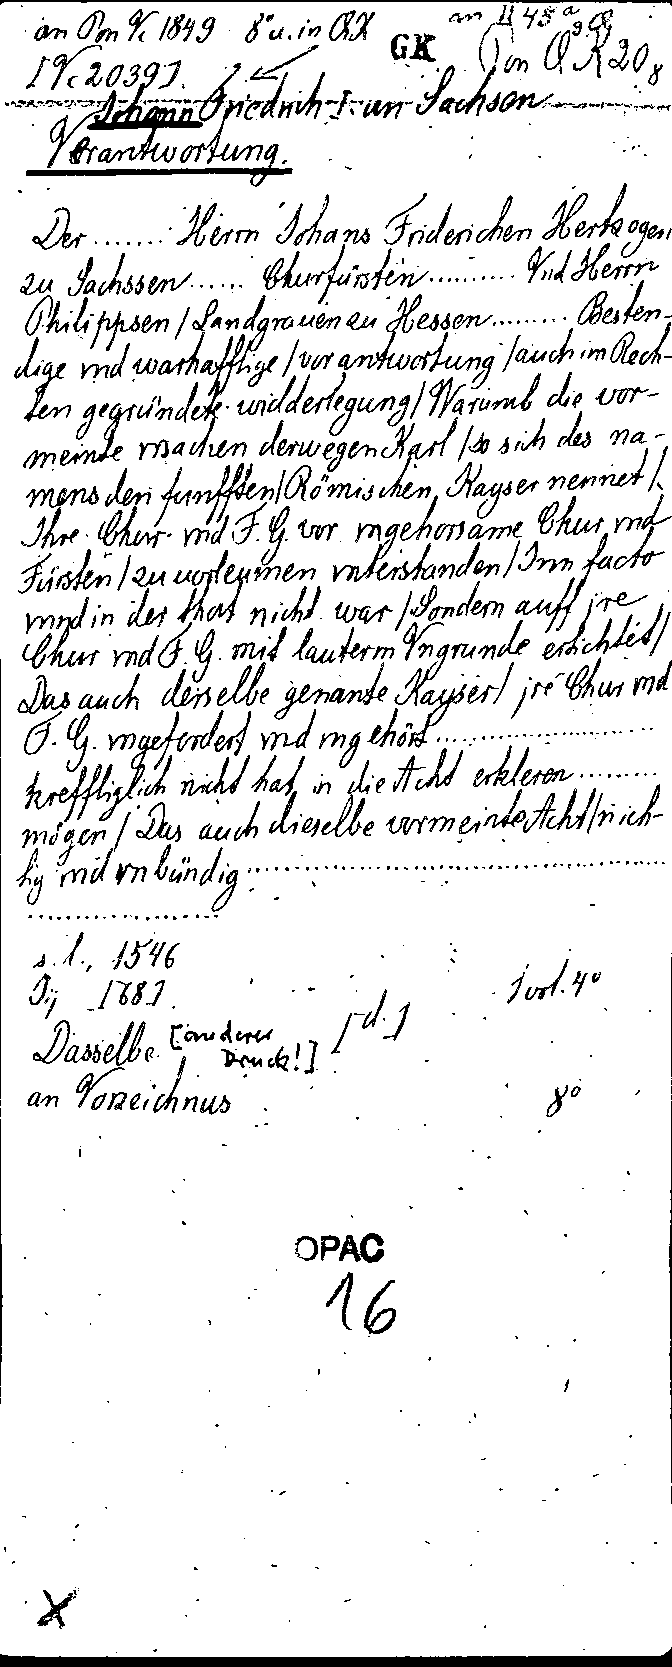 an Pon Vc 1849 8° u. in QK
GK
an II 45a
[Vc 2039].
Von QK 20,8
Johann Friedrich I. von Sachsen
Verantwortung.
Der ....... Herrn Johans Friderichen Hertzogen
zu Sachssen ...... Churfürsten .......... Vnd Herrn
Philippsen / Landgrauen zu Hessen ......... Besten-
dige vnd warhafftige / verantwortung / auch im Rech-
ten gegründete widderlegung / Warumb die ver-
meinte vrsachen derwegen Karl / so sich des na-
mens den funfften / Römischen Kayser nennet /
Ihre Chur vnd F. G. vor vngehorsame Chur vnd
Fürsten / zu vorleumen vnterstanden / Inn facto
vnnd in der that nicht war / Sondern auff jre
Chur vnd F. G. mit lauterm Vngrunde ertichtet /
Das auch derselbe genante Kayser / jre Chur vnd
F. G. vngefordert vnd vngehört .....................
kreffliglich nicht hat in die Acht erkleren .........
mögen / Das auch dieselbe vermeinte Acht / nich-
tig vnd vnbündig ........................................
....................
s. l., 1546
Dij 1681
1 vol. 4°
Dasselbe [anderer Druck!] [d.]
an Vorzeichnus
8°
OPAC
16
X